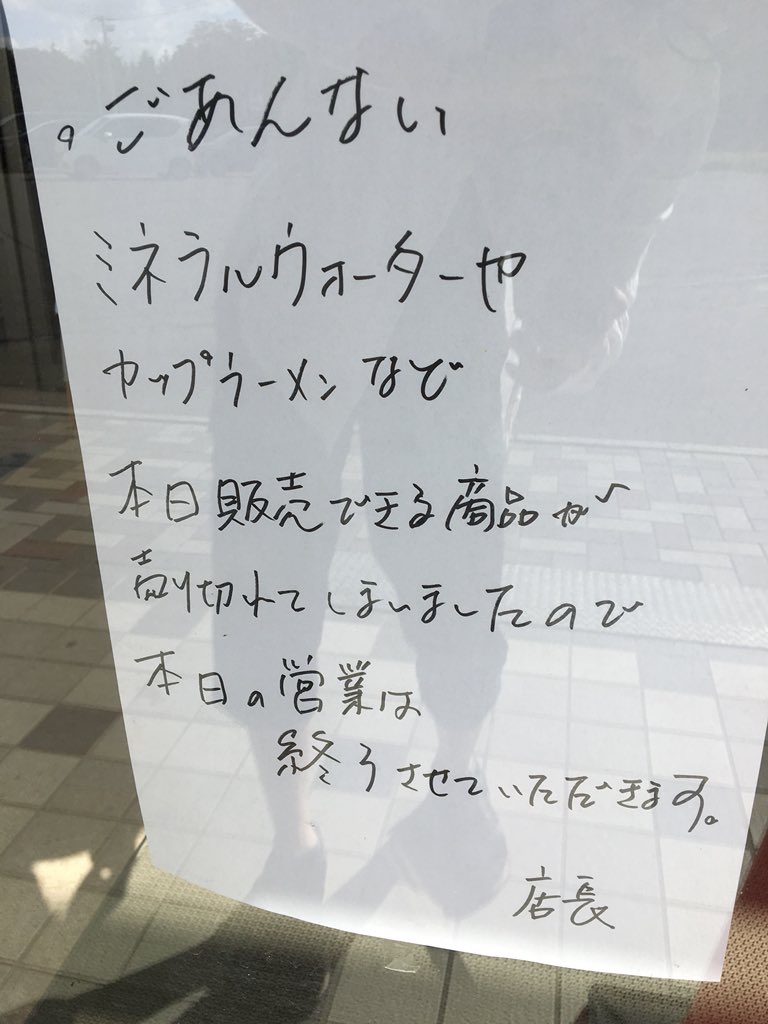 。ごあんない
ミネラルウォーターや
カップラーメンなど
本日販売できる商品が
売り切れてしまいましたので
本日の営業は
終了させていただきます。
店長